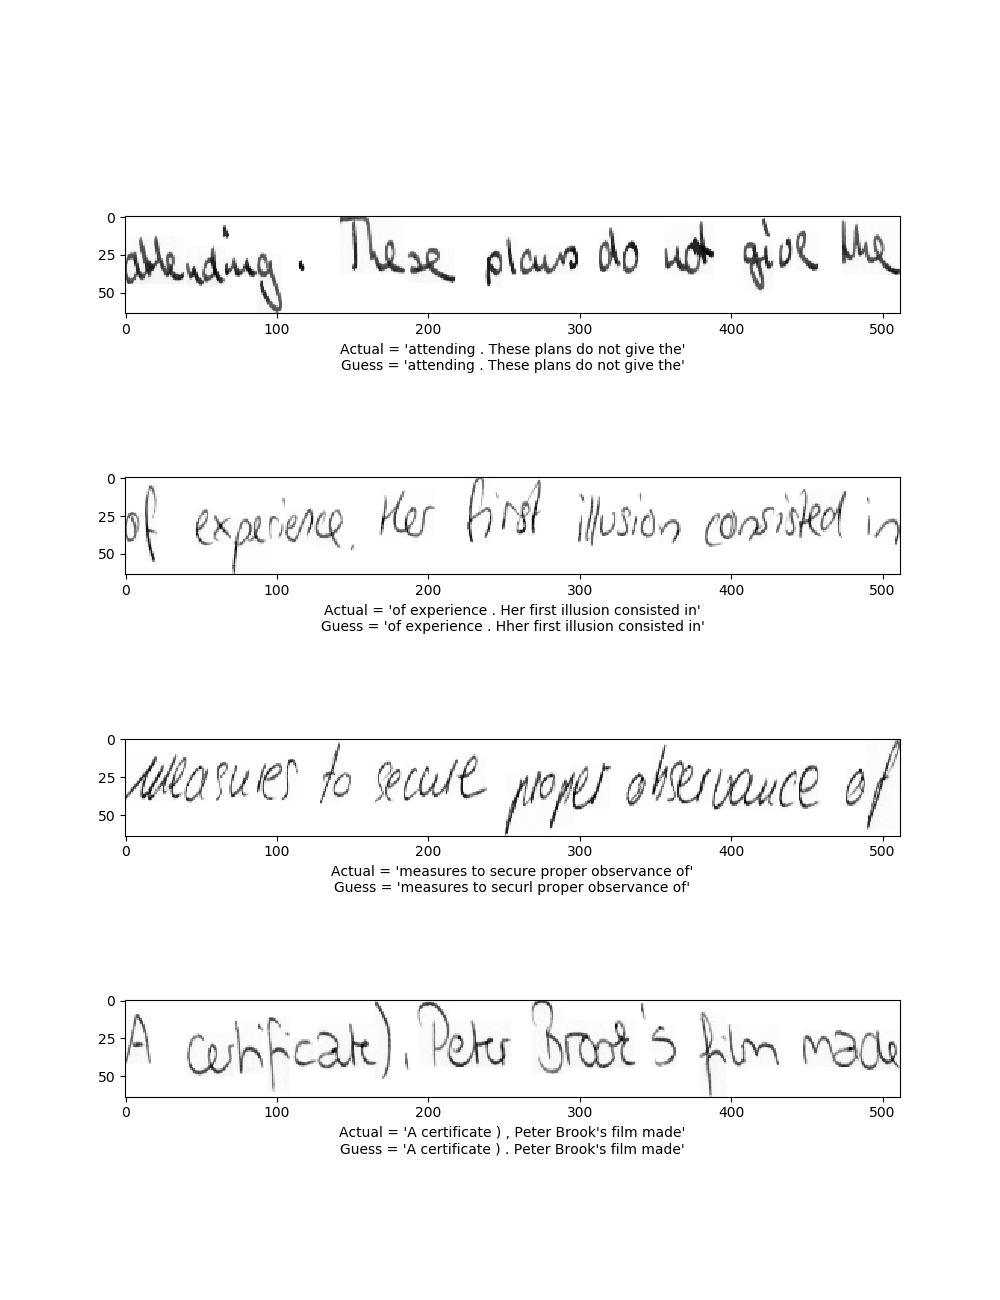 0
25
50
attending . These plans do not give the
0 100 200 300 400 500
Actual = 'attending . These plans do not give the'
Guess = 'attending . These plans do not give the'
0
25
50
of experience. Her first illusion consisted in
0 100 200 300 400 500
Actual = 'of experience . Her first illusion consisted in'
Guess = 'of experience . Hher first illusion consisted in'
0
25
50
measures to secure proper observance of
0 100 200 300 400 500
Actual = 'measures to secure proper observance of'
Guess = 'measures to securl proper observance of'
0
25
50
A certificate), Peter Brook's film made
0 100 200 300 400 500
Actual = 'A certificate ) , Peter Brook's film made'
Guess = 'A certificate ) . Peter Brook's film made'